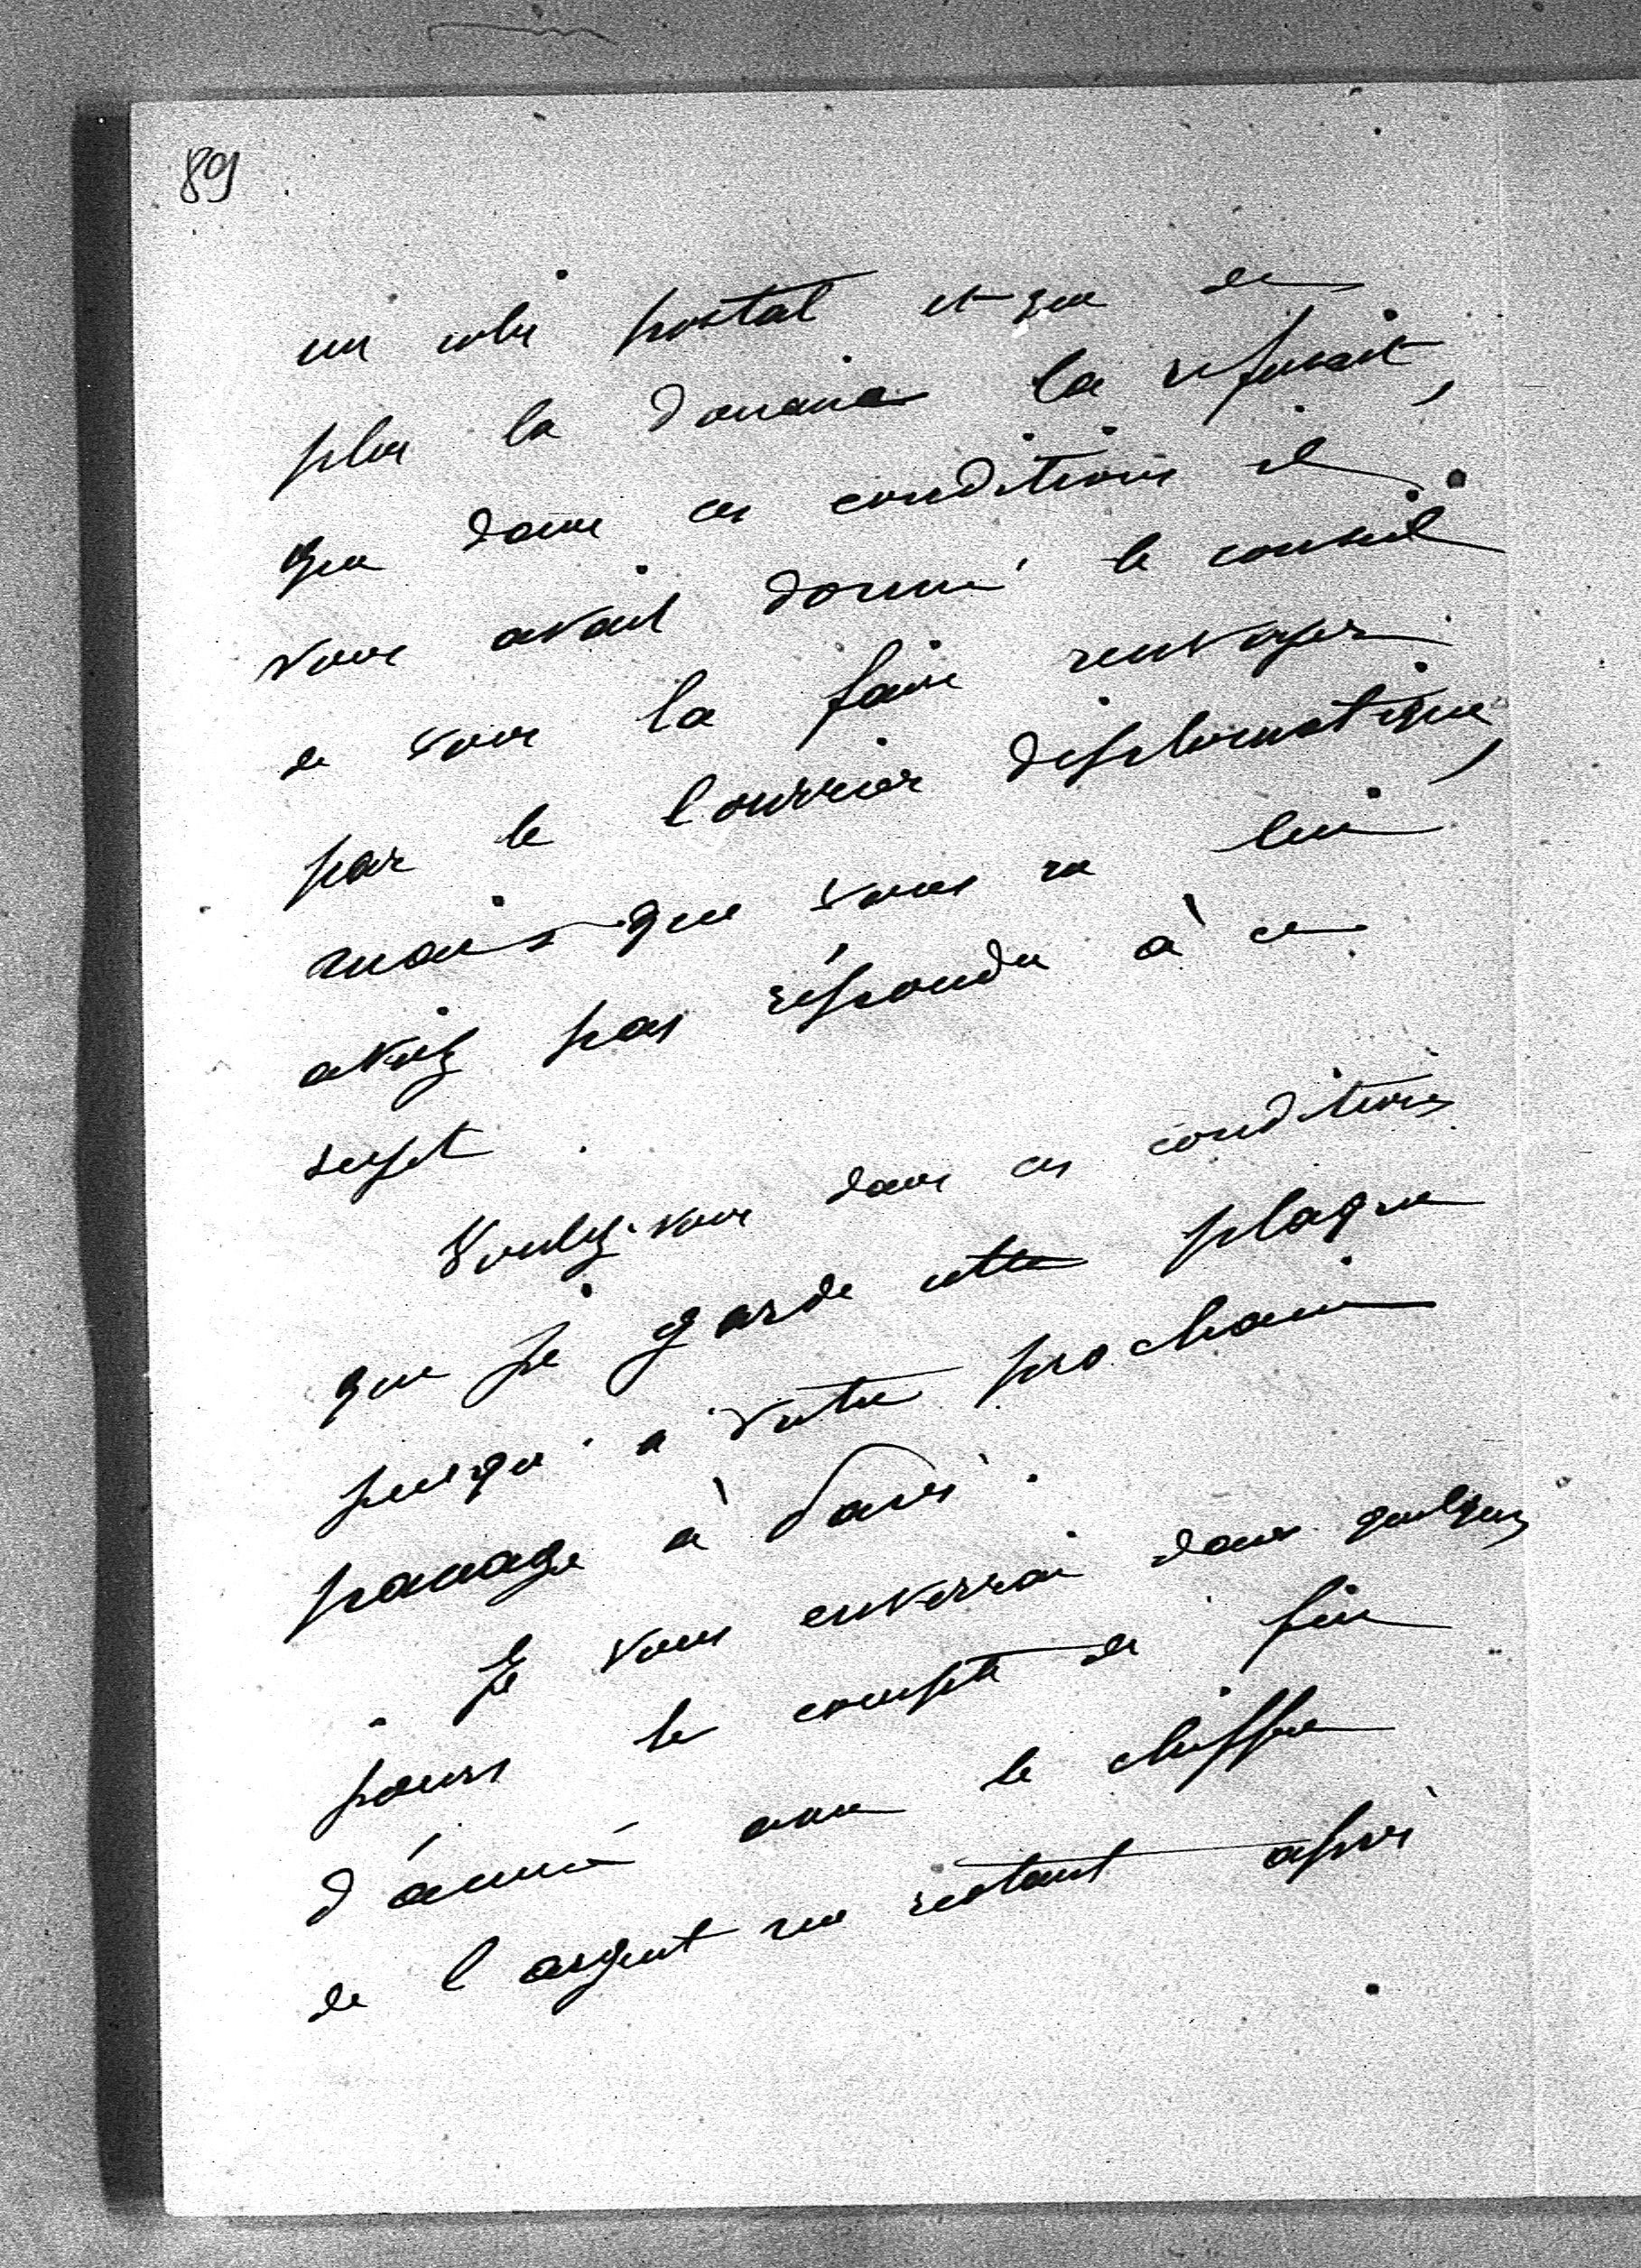 89
un colis postal et que de
plus la douane la refusait,
que dans ces conditions il
vous avait donné le conseil
de vous la faire renvoyer
par le Courrier diplomatique,
mais que vous ne lui
aviez pas répondu à ce
sujet.
Voulez-vous dans ces conditions
que je garde cette plaque
jusqu'à votre prochain
passage à Paris.
Je vous enverrai dans quelques
jours le compte de fin
d'année avec le chiffre
de l'argent me restant après